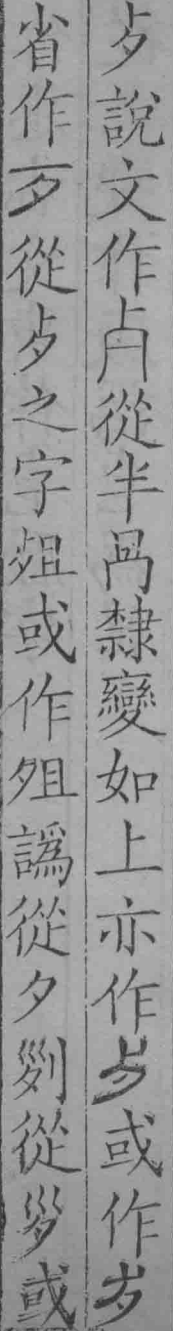 歺說文作𣦵從半冎隸變如上亦作歺或作歺
省作歹從歺之字殂或作𡖖譌從夕剡從歺或